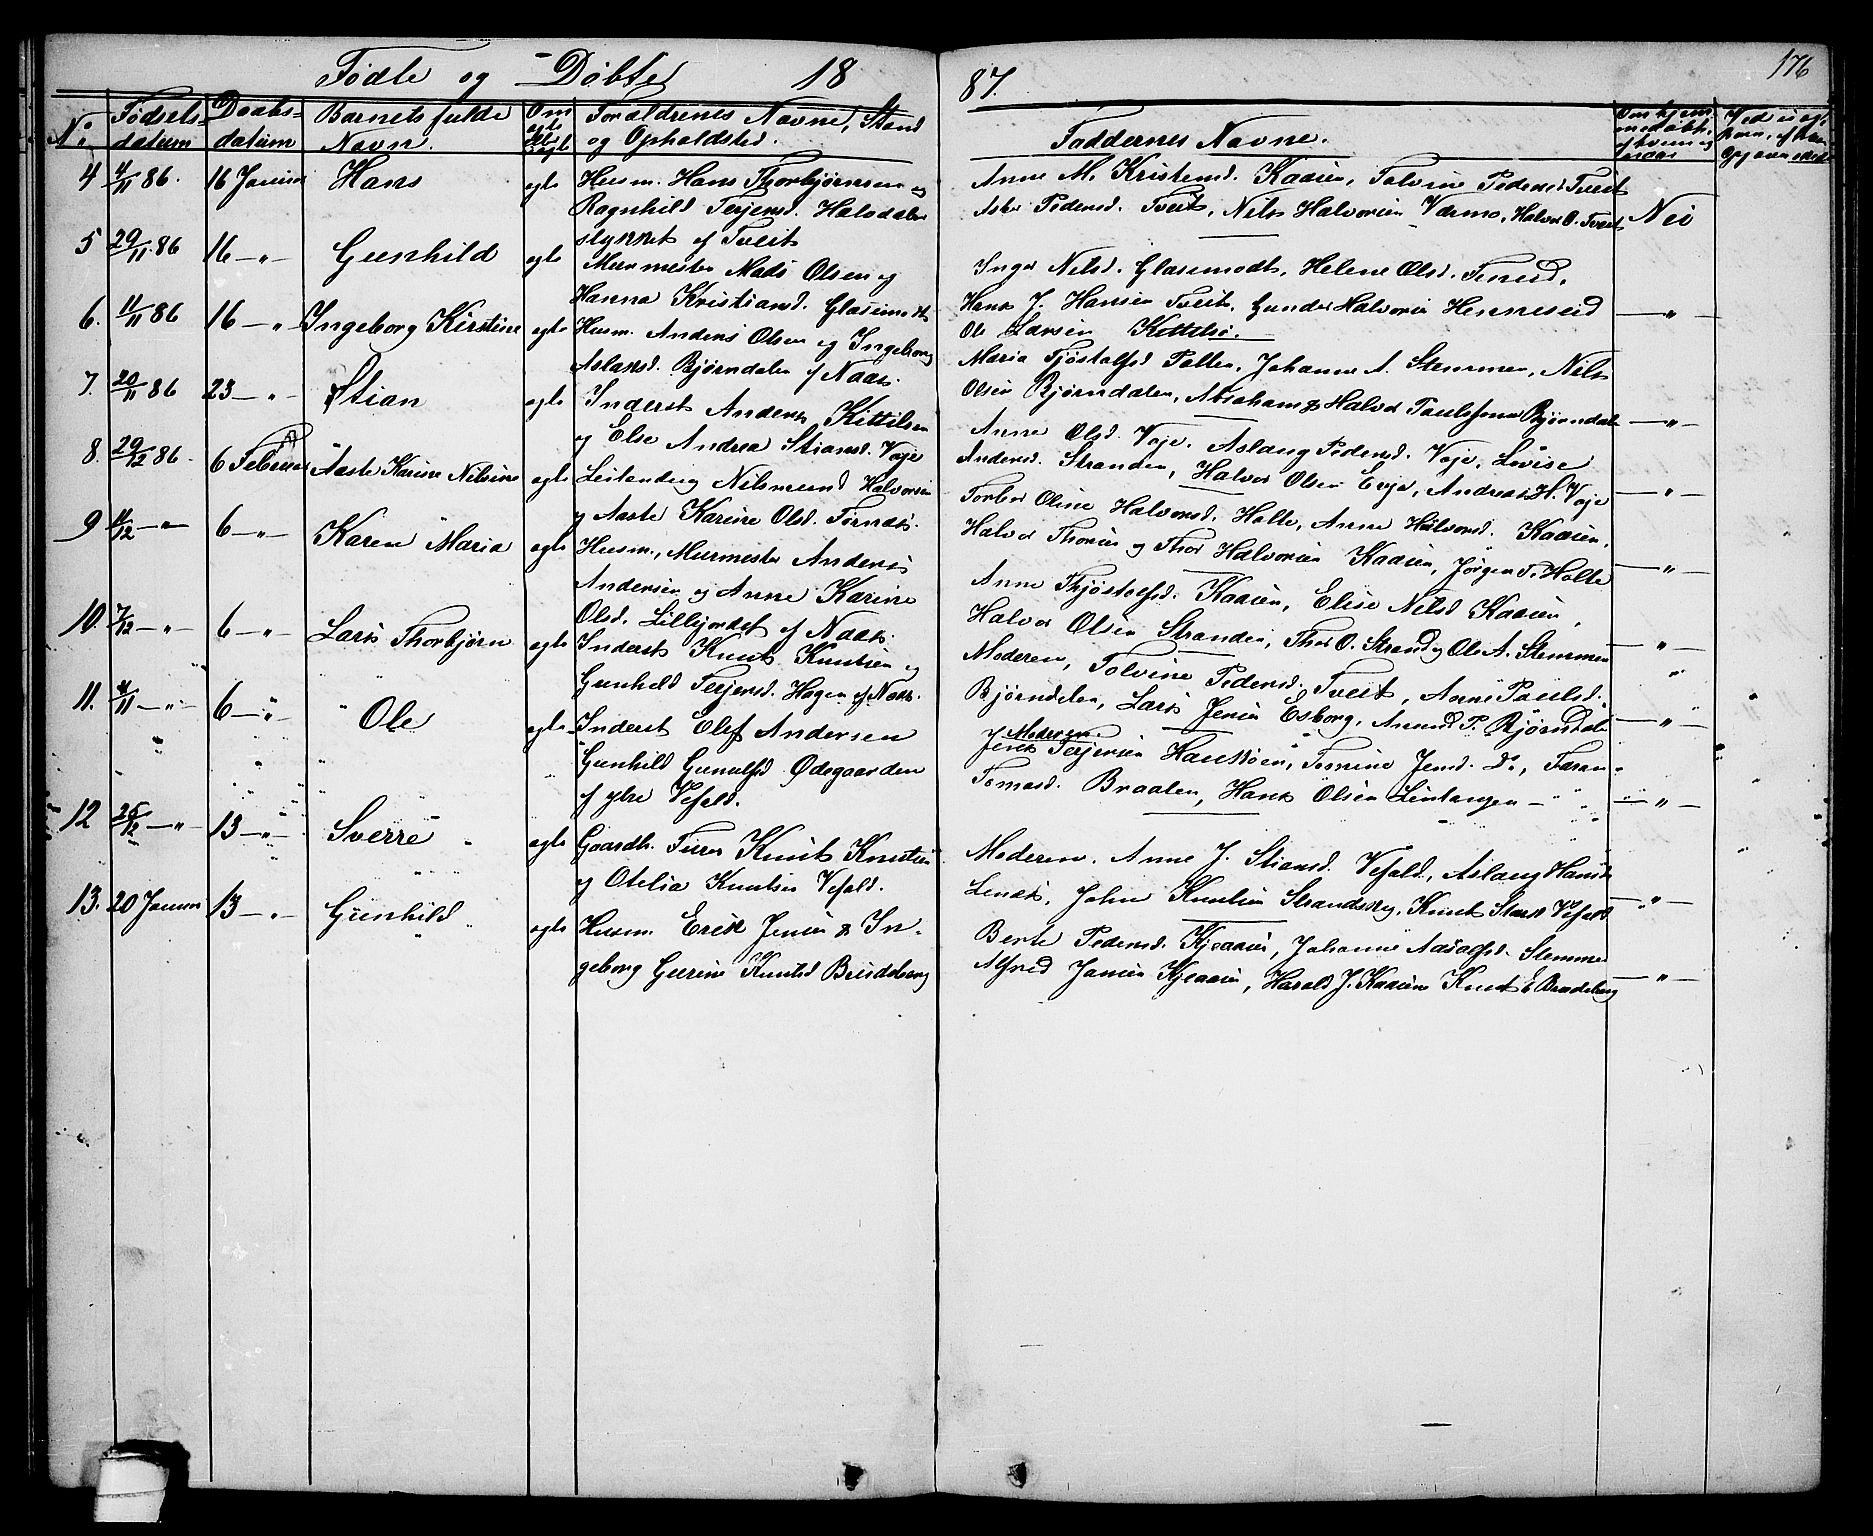 Fødte og Døbte 18
87.
176
No. Fødsels- datum Daabs- datum Barnets fulde Navn. Om ægte eller uægte Forældrenes Navne, Stand og Opholdsted.
Faddernes Navne.
Om hjemmedøbt, af hvem og naar
4 4/11 86. 16 Januar Hans ægte Husm. Hans Thorbjørnsen og
Ragnhild Terjensd. Halsdalen
stykket af Tveit
Anne M. Kristensd. Kaasen, Tolvine Pedersd Tveit
Aslav Pedersd. Tveit, Nils Halvorsen Versmo, Halvor O. Tveit Nei
5 29/11 86 16 -"- Gunhild ægte Murmester Mads Olsen og
Hanna Kristiansd. Glasemodt
Inger Nilsd. Glasemodt, Helene Olsd. Teneid,
Hans J. Hansen Tveit, Gunder Halvorsen Henneseid -"-
Ole Larsen Kittilsø.
6. 11/11 86 16 -"- Ingeborg Kirstine ægte Husm. Anders Olsen og Ingeborg
Aslaksd. Bjørndalen af Naas.
Maria Tjøstolfsd Pollen, Johanne A. Stemmen, Nils
Olsen Bjørndalen, Abraham & Halvor Paulssønner Bjørndal -"-
7. 20/11 86 23 -"- Stian ægte Inderst Anders Kittilsen
og Else Andrea Stiansd. Voje
Anne Olsd. Voje. Aslaug Pedersd. Voje, Lovise
Andersd. Stranden, Halvor Olsen Evje, Andreas H. Voje -"-
8. 29/12 86. 6 Februar Aaste Karine Nilsine ægte Leilænding Nilsmund Halvorsen
og Aaste Karine Olsd. Tornæs.
Torbor Oline Halvorsd. Holte, Anne Halvorsd. Kaasen,
Halvor Thorsen og Thor Halvorsen Kaasen, Jørgen T. Holte -"-
9 11/12 -"- 6 -"- Karen Maria ægte Husm., Murmester Anders
Andersen og Anne Karine
Olsd. Lillejordet af Naas.
Anne Thjøstolfsd. Kaasen, Elise Nilsd Kaasen,
Halvor Olsen Stranden, Thor O. Strand og Ole A. Stemmen -"-
10. 7/12 -"- 6 -"- Lars Thorbjørn ægte Inderst Knut Knutsen og
Gunhild Terjensd. Hagen af Naas.
Moderen, Tolvine Pedersd. Tveit, Anne Paulsd.
Bjørndalen, Lars Jensen Esborg, Anund P. Bjørndal -"-
11. 4/11 -"- 6 -"- Ole ægte Inderst Olef Andersen
Gunhild Gunulfsd Ødegaarden
af ytre Vefald.
Moderen
Jens Terjensen Hanskøien, Tomine Jensd. Do, Taran
Tomasd. Braaten, Hans Olsen Lintangen -"-
12 26/12 -"- 13 -"- Sverre ægte Gaardbr. Knut Knutsen
og Otelia Knutsen Vefald.
Moderen. Anne J. Stiansd. Vefald, Aslaug Hansd.
Lenæs, John Knutsen Strandskog, Knut Stærk Vefald -"-
13. 20 Januar 13 -"- Gunhild ægte Husm. Erik Jensen & In-
geborg Gurine Knutsd Brødeberg
Berte Pedersd. Kjeaasen, Johanne Aasolfsd. Stemmen
Alfred Jansen Kjeaasen, Harald J. Kaasene Knut E. Brødeberg -"-